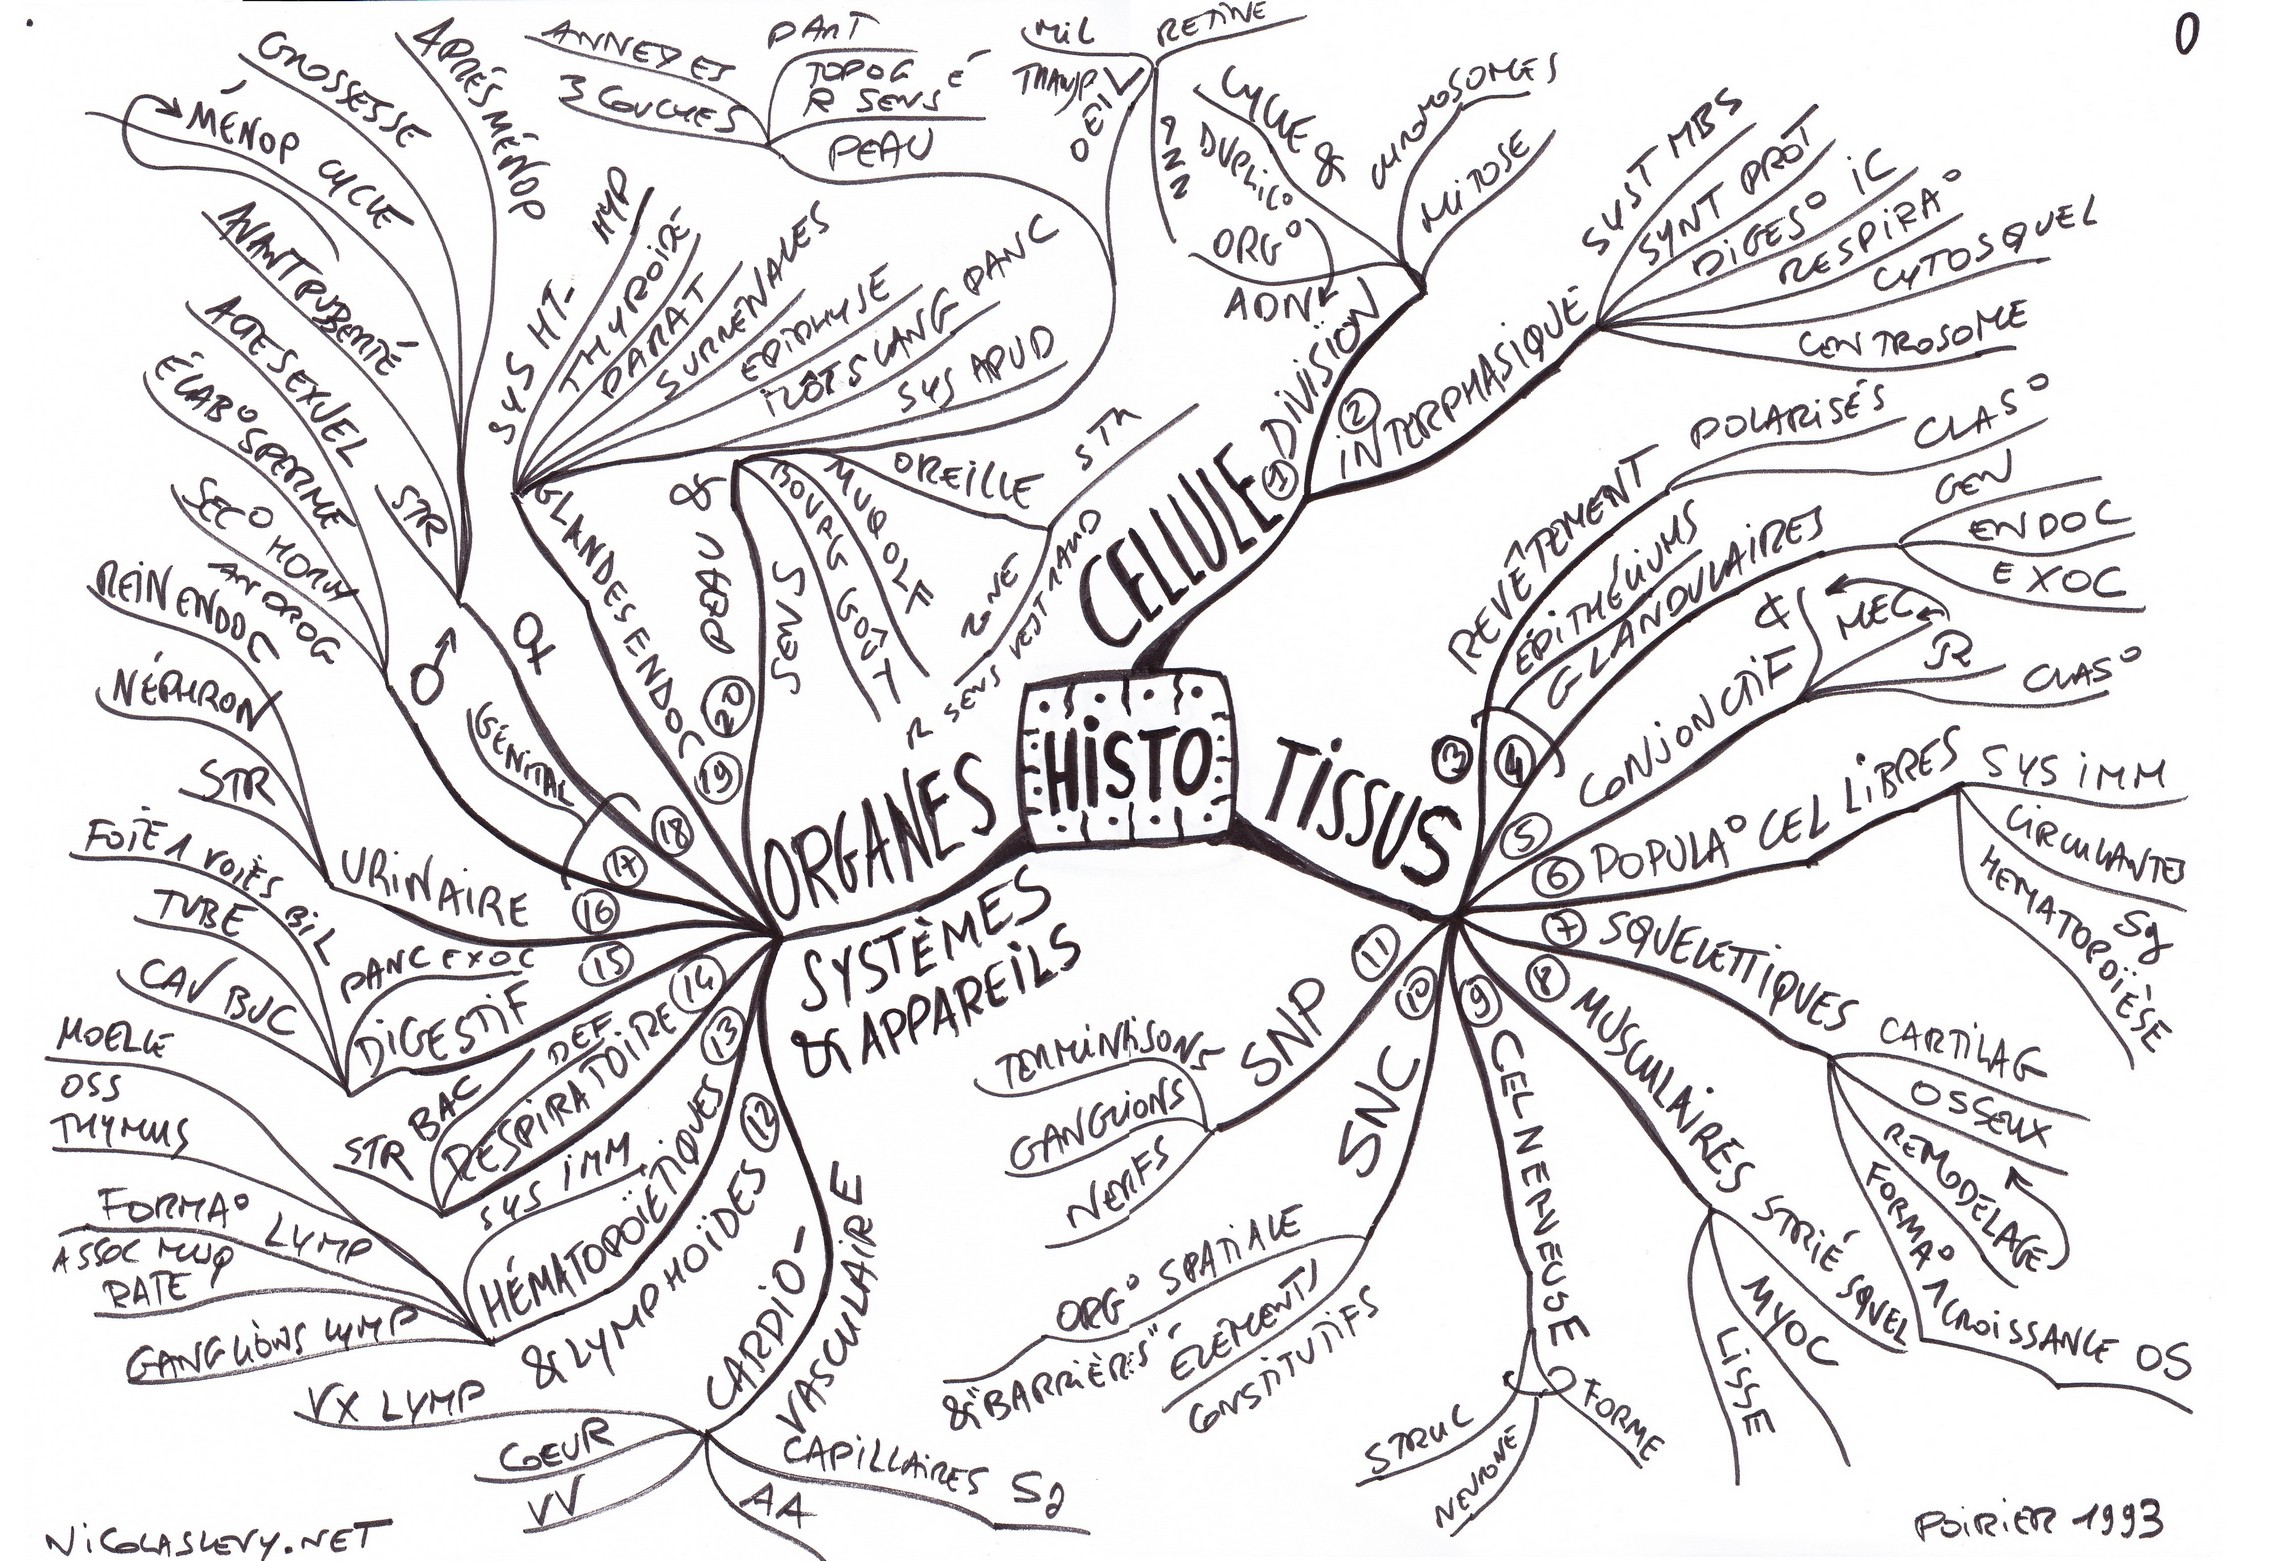 0
HiSTO
CELLULE
1
DIVISION
CYCLE &
DUPLIC°
ORG°
ADN
CHROMOSOMES
MITOSE
2
iNTERPHASIQUE
SYST MBS
SYNT PROT
DIGES° iC
RESPIRA°
CYTOSQUEL
CENTROSOME
TiSSUS
3
REVÊTEMENT
POLARISÉS
CLAS°
ÉPITHÉLIUMS
4
GLANDULAIRES
GEN
ENDOC
EXOC
5
CONJONCTIF
&
MEC
CLAS°
6
POPULA° CEL LIBRES
SYS iMM
CIRCULANTES
Sg
HEMATOPOÏÈSE
7
SQUELÉTTIQUES
CARTILAG
OSSEUX
REMODELAGE
FORMA°
CROISSANCE OS
8
MUSCULAIRES
STRIÉ SQUEL
MYOC
LISSE
9
CEL NERVEUSE
FORME
NEURONE
STRUC
10
SNC
ORG° SPATIALE
& "BARRIÈRES"
ÉLÉMENTS
CONSTITUTIFS
11
SNP
TERMINAISONS
GANGLIONS
NERFS
ORGANES
SYSTÈMES
& APPAREILS
12
CARDIO-
VASCULAIRE
CAPILLAIRES Sg
AA
VV
COEUR
VX LYMP
13
HÉMATOPOÏÉTIQUES
& LYMPHOÏDES
SYS iMM
MOELLE
OSS
THYMUS
FORMA° LYMP
ASSOC MUQ
RATE
GANGLIONS LYMP
14
RESPIRATOIRE
DEF
BAC
STR
15
DIGESTIF
PANC EXOC
FOIE 1 VOIES BIL
TUBE
CAV BUC
16
URINAIRE
REIN ENDOC
NÉPHRON
STR
GÉNITAL
17
♂
ACTE SEXUEL
ÉLAB° SPERME
SEC° HORM
ANDROG
18
♀
STR
AVANT PUBERTÉ
MÉNOP CYCLE
GROSSESSE
APRÉS MÉNOP
19
GLANDES ENDOC
SYS HT-HYP
THYROIDE
PARAT
SURRÉNALES
EPIPHYSE
iLÔTS LANG PANC
SYS APUD
20
PEAU &
SENS
PEAU
ANNEXES
3 COUCHES
PART
TOPOG
R SENS
OEIL
MIL
TRANSP
RETINE
ANN
OREILLE
STR
ZONE
R SENS VEST &AUD
MUQ OLF
BOURG GOÛT
NICOLASLEVY.NET
POIRIER 1993